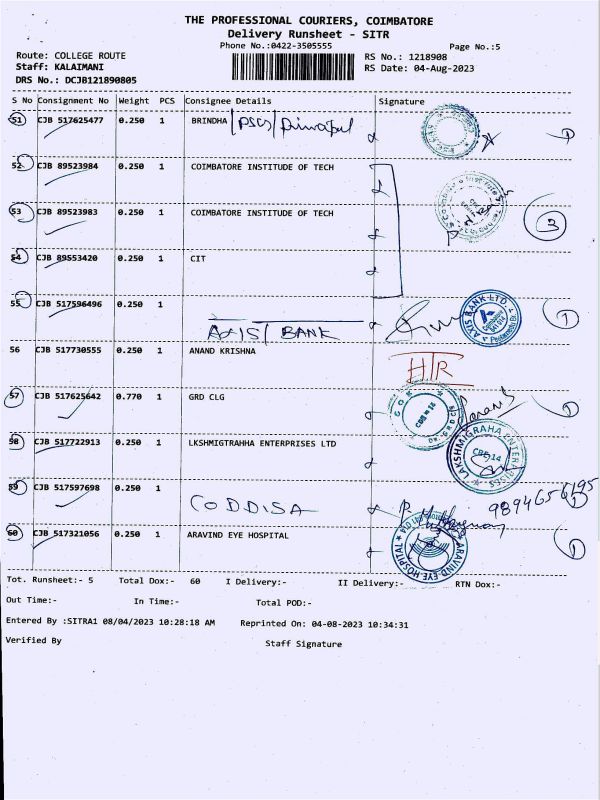 THE PROFESSIONAL COURIERS, COIMBATORE
Delivery Runsheet - SITR
Phone No.:0422-3505555
Page No.:5
Route: COLLEGE ROUTE
RS No.: 1218908
Staff: KALAIMANI
RS Date: 04-Aug-2023
DRS No.: DCJB121890805
S No Consignment No Weight PCS Consignee Details Signature
51 CJB 517625477 0.250 1 BRINDHA
1
52 CJB 89523984 0.250 1 COIMBATORE INSTITUTE OF TECH
53 CJB 89523983 0.250 1 COIMBATORE INSTITUTE OF TECH
3
54 CJB 89553420 0.250 1 CIT
55 CJB 517596496 0.250 1 AXIS BANK
AXIS BANK LTD.
1
56 CJB 517730555 0.250 1 ANAND KRISHNA
HTR
57 CJB 517625642 0.770 1 GRD CLG
1
58 CJB 517722913 0.250 1 LKSHMIGTRAHHA ENTERPRISES LTD
LAKSHMIGRAHA ENTERPRISES
CBE-14
59 CJB 517597698 0.250 1 CODDISA
9894656195
1
60 CJB 517321056 0.250 1 ARAVIND EYE HOSPITAL
ARAVIND EYE HOSPITAL
1
Tot. Runsheet:- 5 Total Dox:- 60 I Delivery:- II Delivery:- RTN Dox:-
Out Time:- In Time:- Total POD:-
Entered By :SITRA1 08/04/2023 10:28:18 AM Reprinted On: 04-08-2023 10:34:31
Verified By Staff Signature